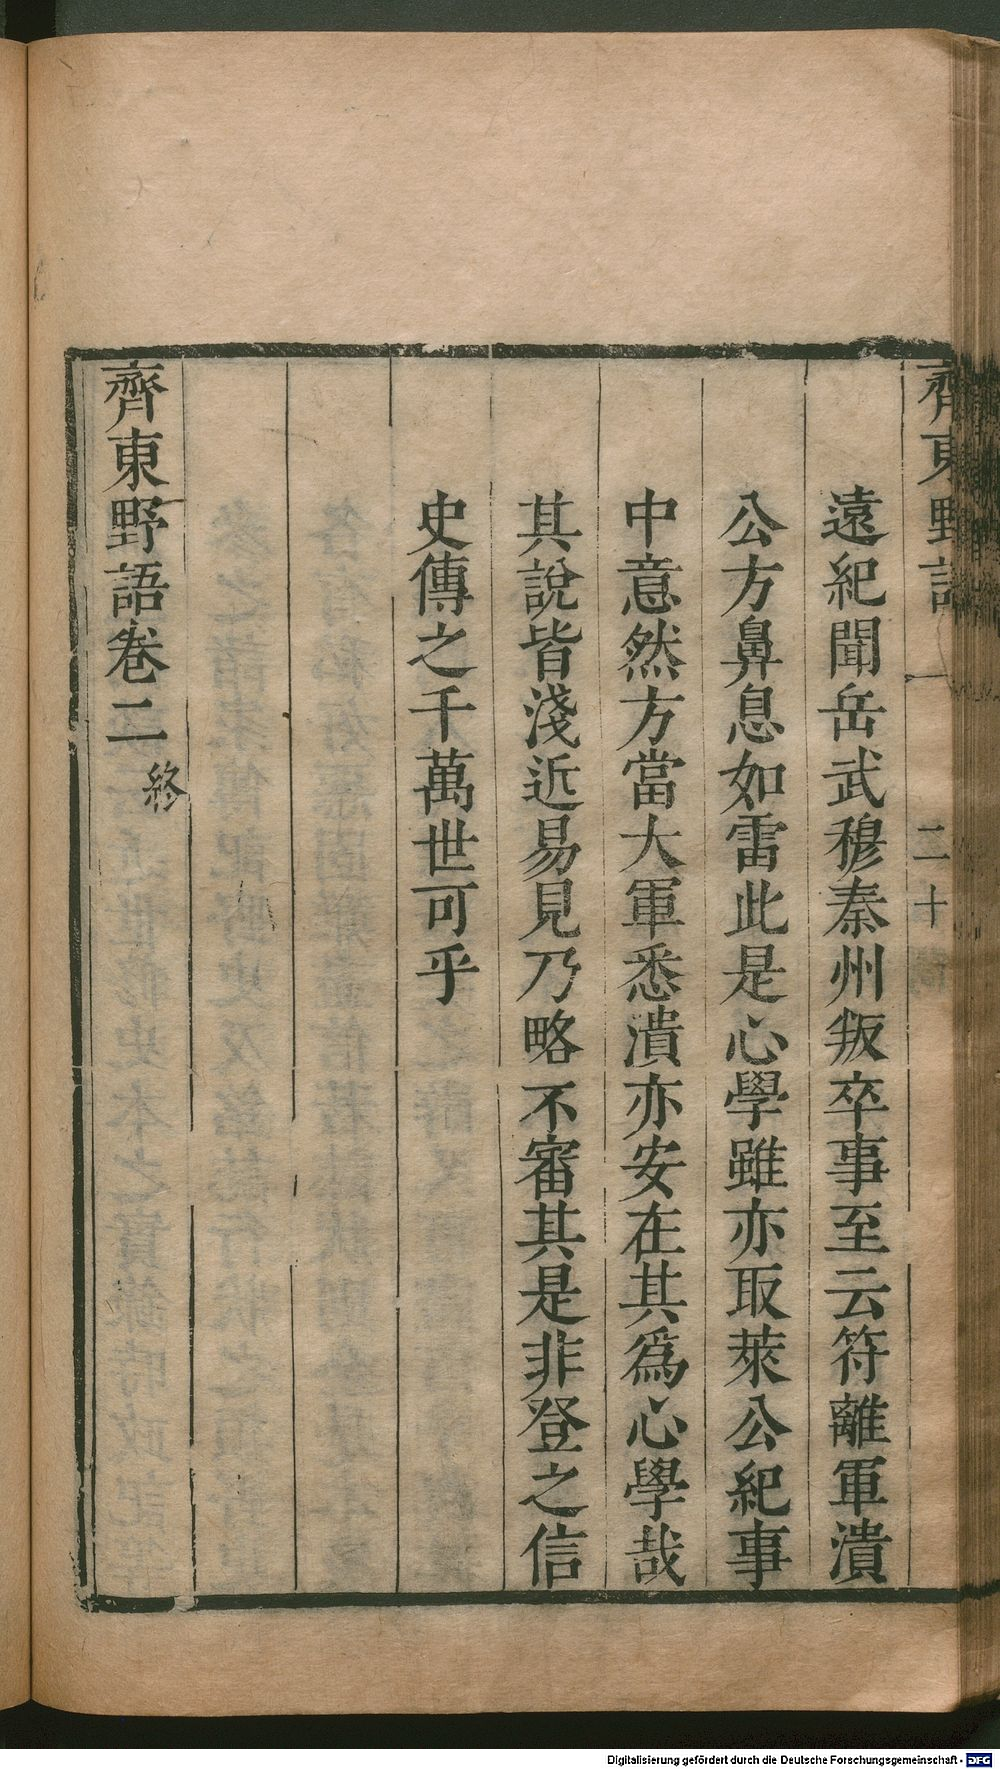 齊東野語
二十
遠紀聞岳武穆秦州叛卒事至云符離軍潰
公方鼻息如雷此是心學雖亦取萊公紀事
中意然方當大軍悉潰亦安在其爲心學哉
其說皆淺近易見乃略不審其是非登之信
史傳之千萬世可乎
齊東野語卷二
終
Digitalisierung gefördert durch die Deutsche Forschungsgemeinschaft - DFG